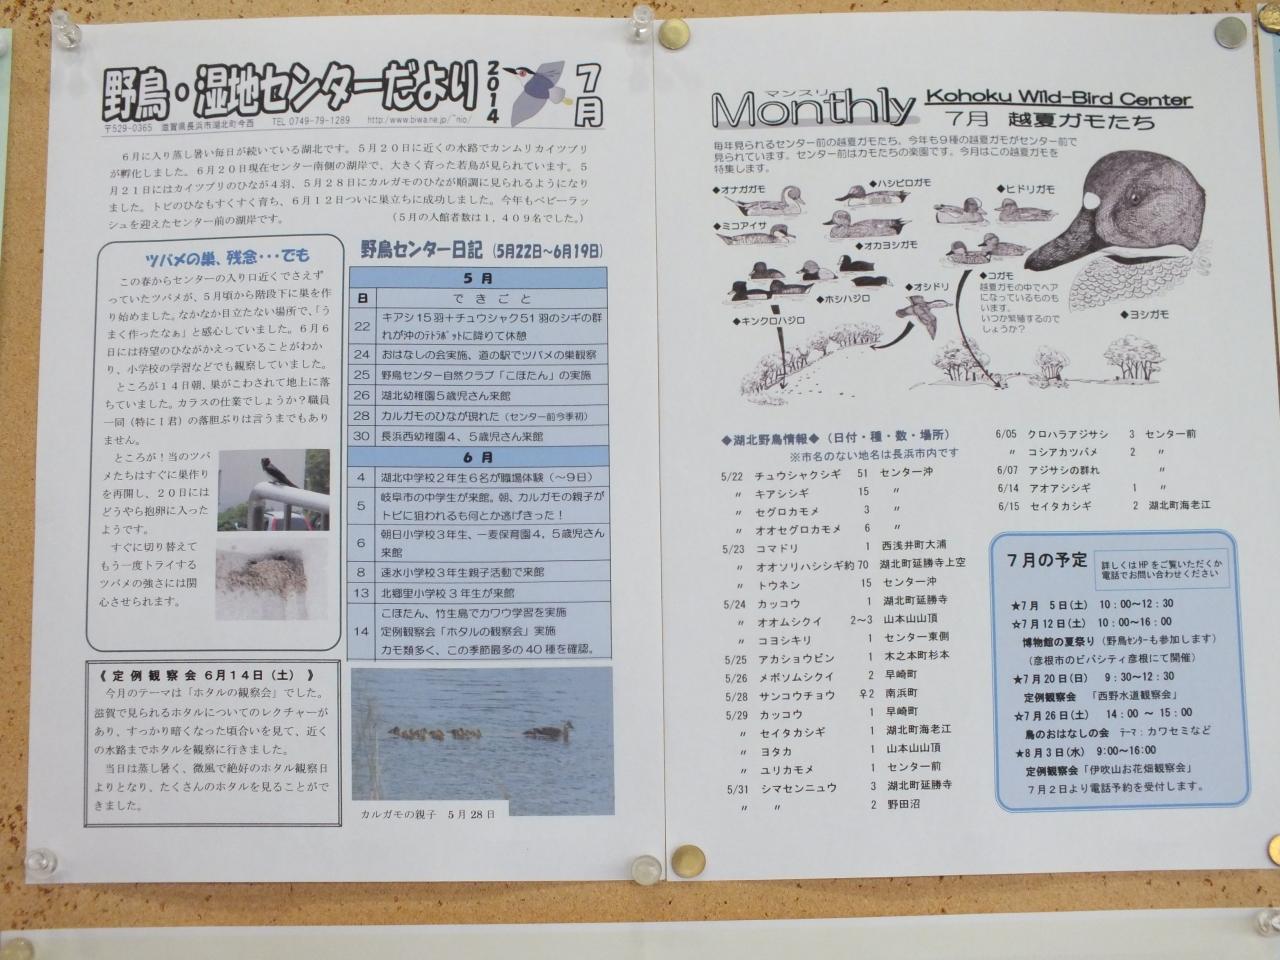 野鳥・湿地センターだより
2014
7月
〒529-0365 滋賀県長浜市湖北町今西 TEL 0749-79-1289 http://www.biwa.ne.jp/~nio/
６月に入り蒸し暑い毎日が続いている湖北です。５月２０日に近くの水路でカンムリカイツブリ
が孵化しました。６月２０日現在センター南側の湖岸で、大きく育った若鳥が見られています。５
月２１日にはカイツブリのひなが４羽、５月２８日にカルガモのひなが順調に見られるようになり
ました。トビのひなもすくすく育ち、６月１２日ついに巣立ちに成功しました。今年もベビーラッ
シュを迎えたセンター前の湖岸です。　（５月の入館者数は１，４０９名でした。）
ツバメの巣、残念・・・でも
この春からセンターの入り口近くでさえず
っていたツバメが、５月頃から階段下に巣を作
り始めました。なかなか目立たない場所で、「う
まく作ったなぁ」と感心していました。６月６
日には待望のひながかえっていることがわか
り、小学校の学習などでも観察していました。
ところが１４日朝、巣がこわされて地上に落
ちていました。カラスの仕業でしょうか？職員
一同（特にＩ君）の落胆ぶりは言うまでもあり
ません。
ところが！当のツバ
メたちはすぐに巣作り
を再開し、２０日には
どうやら抱卵に入った
ようです。
すぐに切り替えて
もう一度トライする
ツバメの強さには関
心させられます。
《定例観察会６月１４日（土）》
今月のテーマは「ホタルの観察会」でした。
滋賀で見られるホタルについてのレクチャーが
あり、すっかり暗くなった頃合いを見て、近く
の水路までホタルを観察に行きました。
当日は蒸し暑く、微風で絶好のホタル観察日
よりとなり、たくさんのホタルを見ることがで
きました。
野鳥センター日記（5月22日～6月19日）
５月
日 できごと
22 キアシ15羽＋チュウシャク51羽のシギの群
れが沖のテトラポットに降りて休憩
24 おはなしの会実施、道の駅でツバメの巣観察
25 野鳥センター自然クラブ「こほたん」の実施
26 湖北幼稚園５歳児さん来館
28 カルガモのひなが現れた（センター前今季初）
30 長浜西幼稚園４、５歳児さん来館
６月
4 湖北中学校２年生６名が職場体験（～９日）
5 岐阜市の中学生が来館。朝、カルガモの親子が
トビに狙われるも何とか逃げきった！
6 朝日小学校３年生、一麦保育園４，５歳児さん
来館
8 速水小学校３年生親子活動で来館
13 北郷里小学校３年生が来館
14 こほたん、竹生島でカワウ学習を実施
定例観察会「ホタルの観察会」実施
カモ類多く、この季節最多の40種を確認。
カルガモの親子　５月28日
マンスリー
Monthly Kohoku Wild-Bird Center
７月 越夏ガモたち
毎年見られるセンター前の越夏ガモたち、今年も９種の越夏ガモがセンター前で
見られています。センター前はカモたちの楽園です。今月はこの越夏ガモを
特集します。
◆オナガガモ
◆ハシビロガモ
◆ヒドリガモ
◆ミコアイサ
◆オカヨシガモ
◆コガモ
越夏ガモの中でペア
になっているものも
います。
いつか繁殖するので
しょうか？
◆オシドリ
◆ホシハジロ
◆キンクロハジロ
◆ヨシガモ
◆湖北野鳥情報◆（日付・種・数・場所）
※市名のない地名は長浜市内です
5/22 チュウシャクシギ 51 センター沖
〃 キアシシギ 15 〃
〃 セグロカモメ 3 〃
〃 オオセグロカモメ 6 〃
5/23 コマドリ 1 西浅井町大浦
〃 オオソリハシシギ約70 湖北町延勝寺上空
〃 トウネン 15 センター沖
5/24 カッコウ 1 湖北町延勝寺
〃 オオムシクイ 2～3 山本山山頂
〃 コヨシキリ 1 センター東側
5/25 アカショウビン 1 木之本町杉本
5/26 メボソムシクイ 2 早崎町
5/28 サンコウチョウ ♀2 南浜町
5/29 カッコウ 1 早崎町
〃 セイタカシギ 1 湖北町海老江
〃 ヨタカ 1 山本山山頂
〃 ユリカモメ 1 センター前
5/31 シマセンニュウ 3 湖北町延勝寺
〃 〃 2 野田沼
6/05 クロハラアジサシ 3 センター前
〃 コシアカツバメ 2 〃
6/07 アジサシの群れ 〃
6/14 アオアシシギ 1 〃
6/15 セイタカシギ 2 湖北町海老江
７月の予定
詳しくはHPをご覧いただくか
電話でお問い合わせください
★７月　５日(土)　10：00～12：30
☆７月12日(土)　10：00～16：00
博物館の夏祭り（野鳥センターも参加します）
（彦根市のビバシティ彦根にて開催）
★７月20日(日)　9：30～12：30
定例観察会　「西野水道観察会」
☆７月26日(土)　14：00 ～ 15：00
鳥のおはなしの会　テーマ：カワセミなど
★８月３日(水)　9:00～16:00
定例観察会「伊吹山お花畑観察会」
７月２日より電話予約を受付します。